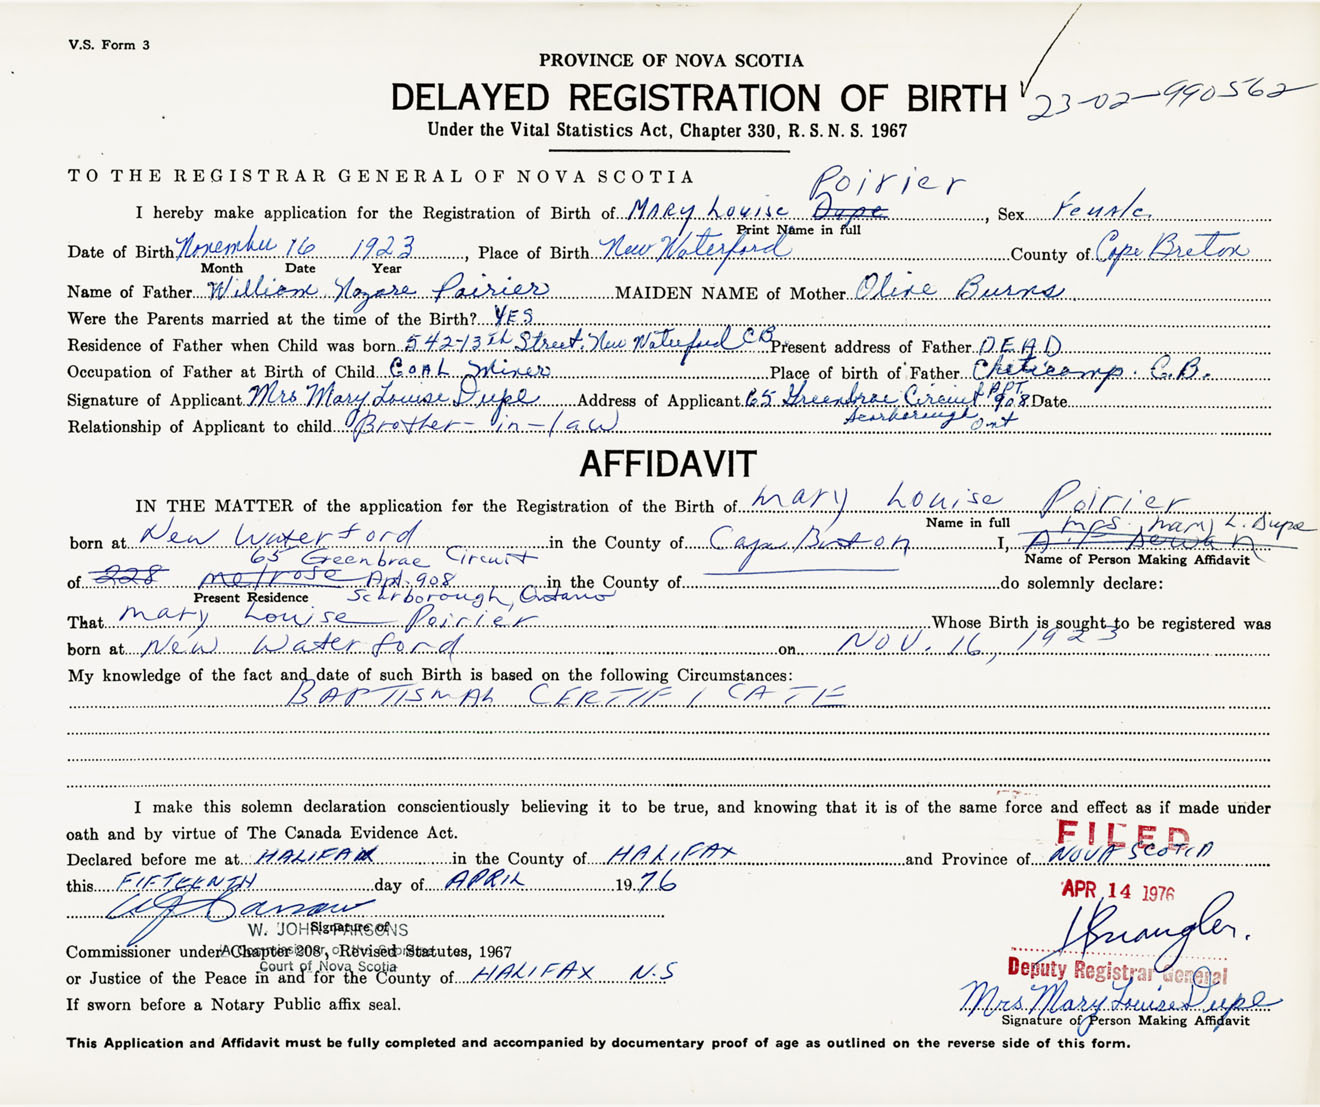 V.S. Form 3
PROVINCE OF NOVA SCOTIA
DELAYED REGISTRATION OF BIRTH
23-02-990562
Under the Vital Statistics Act, Chapter 330, R.S.N.S. 1967
TO THE REGISTRAR GENERAL OF NOVA SCOTIA
Poirier
I hereby make application for the Registration of Birth of MARY Louise Dupe, Sex Female
Print Name in full
Date of Birth November 16 1923, Place of Birth New Waterford County of Cape Breton
Month Date Year
Name of Father William Nazare Poirier MAIDEN NAME of Mother Olive Burns
Were the Parents married at the time of the Birth? YES
Residence of Father when Child was born 542-13th Street. New Waterford CB Present address of Father DEAD
Occupation of Father at Birth of Child COAL Miner Place of birth of Father Cheticamp. C.B.
Signature of Applicant Mrs Mary Louise Dupe Address of Applicant 65 Greenbrae Circuit APT 908 Date
Scarborough Ont
Relationship of Applicant to child Brother-in-law
AFFIDAVIT
IN THE MATTER of the application for the Registration of the Birth of Mary Louise Poirier
Name in full
Mrs. Mary L. Dupe
born at New Waterford in the County of Cape Breton I,
Name of Person Making Affidavit
65 Greenbrae Circuit
of 228 Melrose Apt. 908 in the County of do solemnly declare:
Present Residence Scarborough, Ontario
That Mary Louise Poirier Whose Birth is sought to be registered was
born at New Waterford on NOV. 16, 1923
My knowledge of the fact and date of such Birth is based on the following Circumstances:
BAPTISMAL CERTIFICATE
I make this solemn declaration conscientiously believing it to be true, and knowing that it is of the same force and effect as if made under
oath and by virtue of The Canada Evidence Act.
FILED
Declared before me at HALIFAX in the County of HALIFAX and Province of NOVA SCOTIA
this FIFTEENTH day of APRIL 1976
APR 14 1976
Signature of
W. JOHN PARSONS
Commissioner under Chapter 208, Revised Statutes, 1967
A Commissioner of the Supreme
Court of Nova Scotia
Deputy Registrar General
or Justice of the Peace in and for the County of HALIFAX N.S
Mrs. Mary Louise Dupe
If sworn before a Notary Public affix seal.
Signature of Person Making Affidavit
This Application and Affidavit must be fully completed and accompanied by documentary proof of age as outlined on the reverse side of this form.